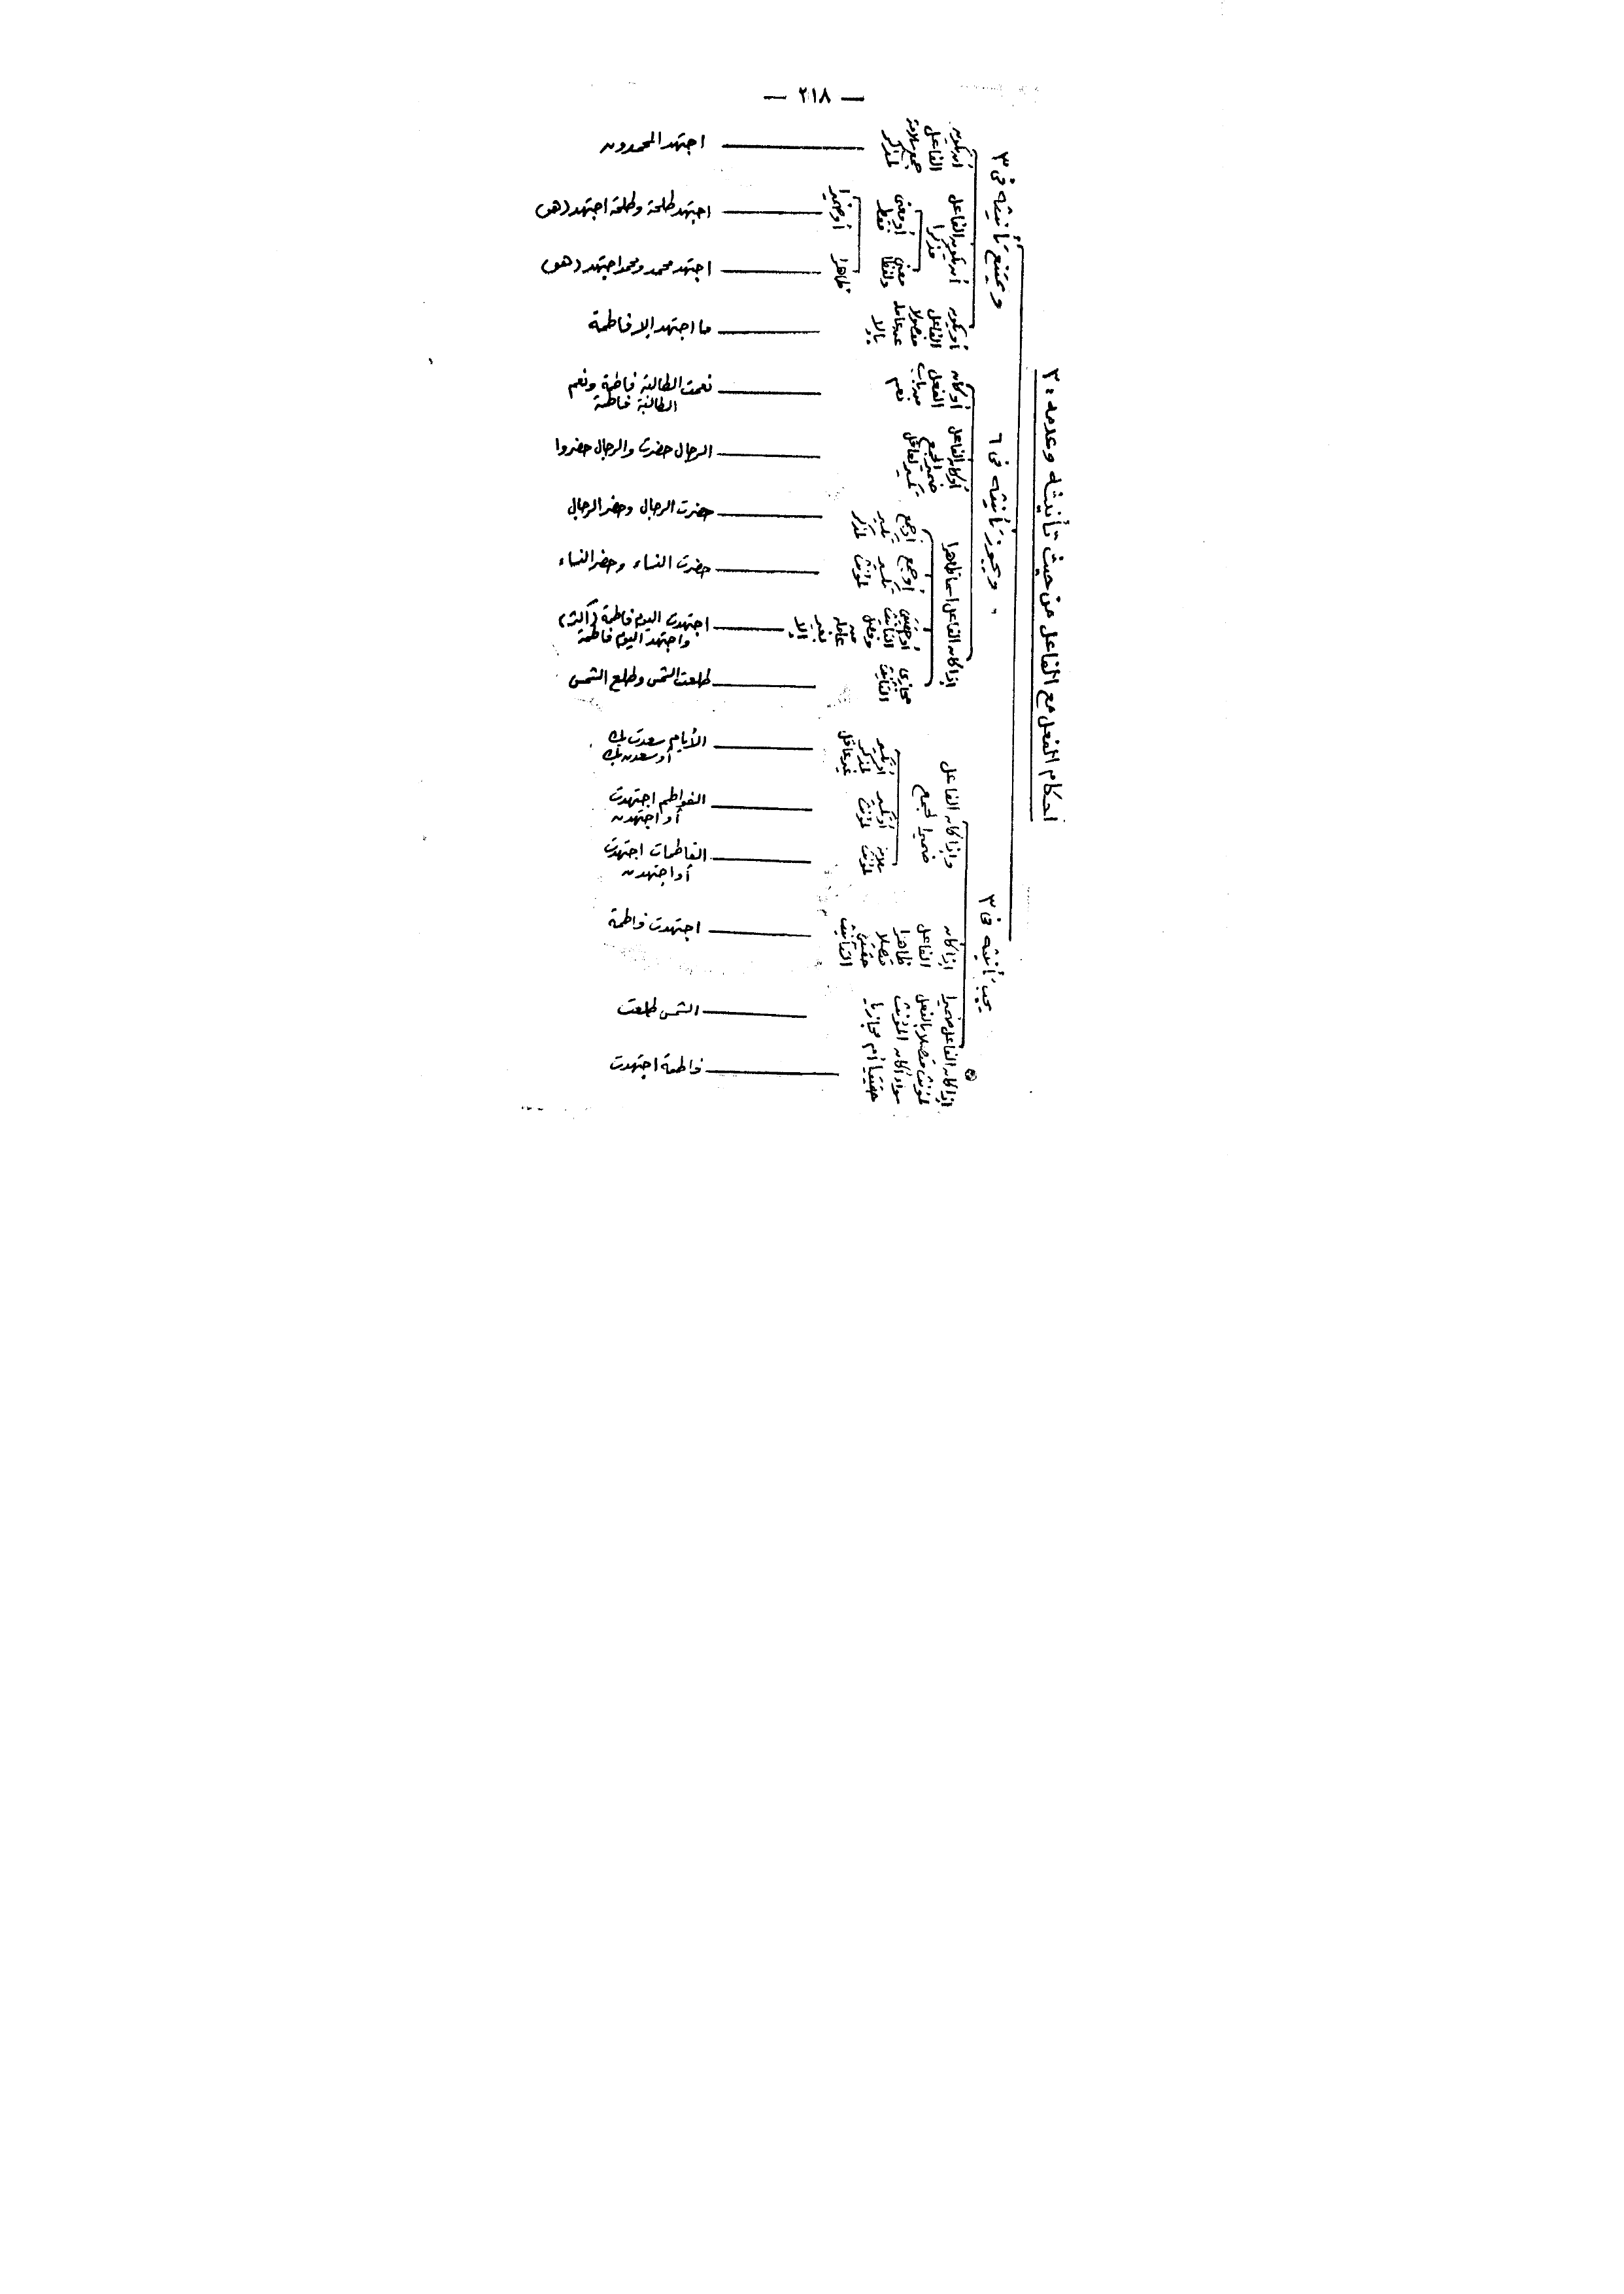 — ٢١٨ —
أحكام الفعل مع الفاعل من حيث تأنيثه وعدمه : ٣
يجب تأنيثه فى ٣
إذا كان الفاعل ضميرا
متصلا بالفعل
لمؤنث
سواء أكان المؤنث
حقيقيا أم مجازيا
فاطمة اجتهدت
الشمس طلعت
إذا كان
الفاعل
ظاهرا
متصلا
حقيقى
التأنيث
اجتهدت فاطمة
وإذا كان الفاعل
ضميرا لجمع
سلامة
لمؤنث
الفاطمات اجتهدت
أو اجتهدن
أو تكسير
لمؤنث
الفواطم اجتهدت
أو اجتهدن
أو تكسير
لمذكر
غير عاقل
الأيام سعدت بك
أو سعدن بك
ويجوز تأنيثه فى ٦
إذا كان الفاعل اسما ظاهرا
مجازى
التأنيث
طلعت الشمس وطلع الشمس
أو حقيقى
التأنيث
وفصل
من
عامله
بغير
إلا
اجتهدت اليوم فاطمة (أكثر)
واجتهد اليوم فاطمة
أو جمع
تكسير
لمؤنث
حضرت النساء وحضر النساء
أو جمع
تكسير
لمذكر
حضرت الرجال وحضر الرجال
أو كان الفاعل
ضمير الجمع
تكسير لعاقل
الرجال حضرت والرجال حضروا
أو كان
الفعل
من باب
نعم
نعمت الطالبة فاطمة ونعم
الطالبة فاطمة
ويمتنع تأنيثه فى ٣
أو يكون
الفاعل
مفصولا
عن عامله
بإلا
ما اجتهد إلا فاطمة
أن يكون الفاعل
مذكرا
معنى
ولفظا
أو معنى
فقط
ظاهرا
أو ضميرا
اجتهد محمد ومحمد اجتهد (هو)
اجتهد طلحة وطلحة اجتهد (هو)
أن يكون
الفاعل
جمع سلامة
لمذكر
اجتهد المحمدون